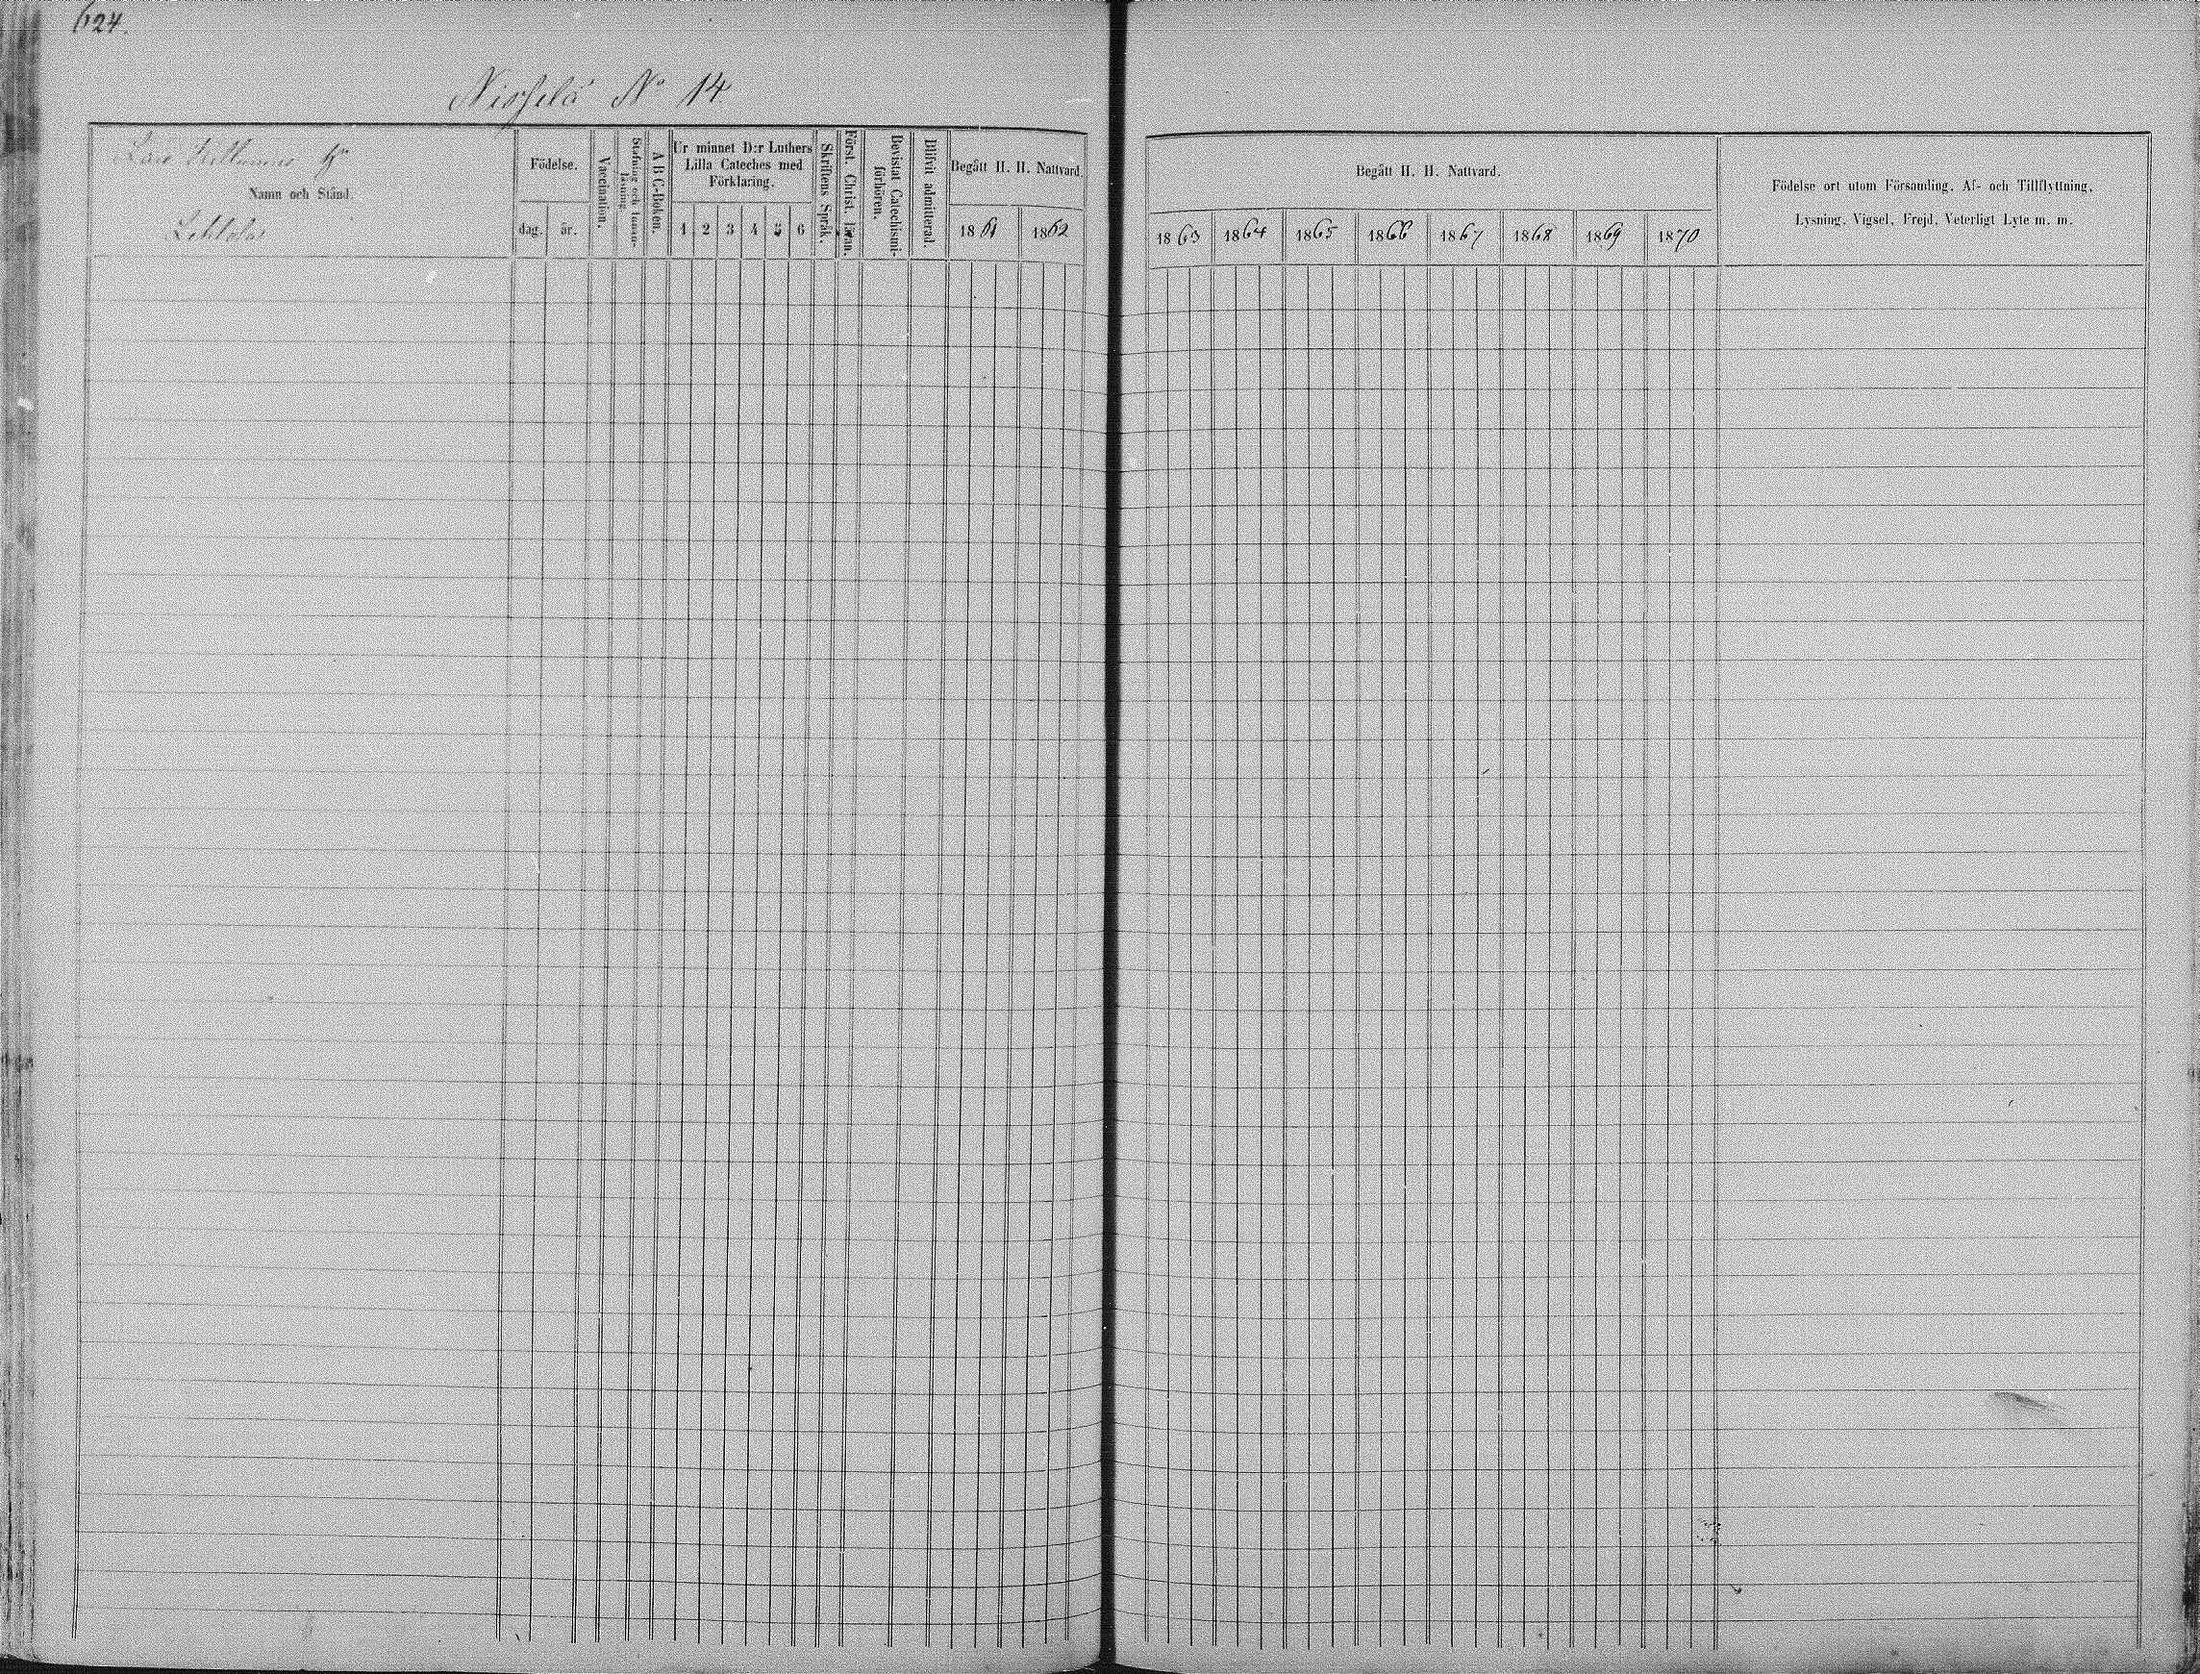 624.
Nissilä No 14
Namn och Stånd.
Födelse.
dag.
år.
Vaccination.
Stafning och Innan-
läsning.
A B C-Boken.
Ur minnet D:r Luthers
Lilla Cateches med
Förklaring.
1 2 3 4 5 6
Skriftens Språk.
Först. Christ. Läran.
Bevistat Catechismi-
förhören.
Blifvit admitterad.
Begått H. H. Nattvard.
1861 1862
Begått H. H. Nattvard.
1863 1864 1865 1866 1867 1868 1869 1870
Födelse ort utom Församling, Af- och Tillflyttning,
Lysning, Vigsel, Frejd, Veterligt Lyte m. m.